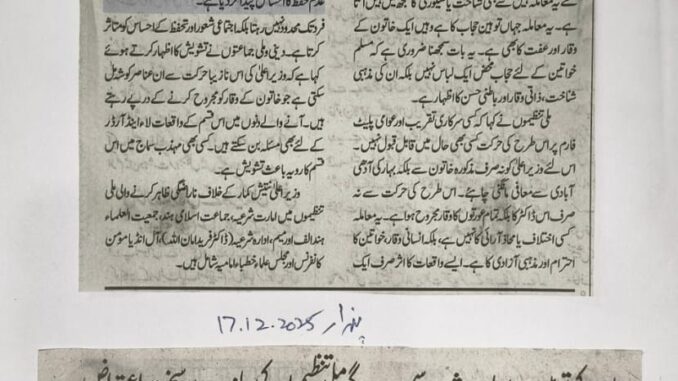 ہے یہ معاملہ
یہ معاملہ جہاں توہین حجاب کا ہے وہیں ایک خاتون کے
وقار اور عفت کا بھی ہے۔ یہ بات سمجھنا ضروری ہے کہ مسلم
خواتین کے لئے حجاب محض ایک لباس نہیں بلکہ ان کی مذہبی
شناخت، ذاتی وقار اور باطنی حسن کا اظہار ہے۔
ملی تنظیموں نے کہا کہ کسی سرکاری تقریب اور عوامی پلیٹ
فارم پر اس طرح کی حرکت کسی بھی حال میں قابل قبول نہیں۔
اس لئے وزیراعلیٰ کو نہ صرف مذکورہ خاتون سے بلکہ بہار کی آدھی
آبادی سے معافی مانگنی چاہئے۔ اس طرح کی حرکت سے نہ
صرف اس ڈاکٹر کا بلکہ تمام عورتوں کا وقار مجروح ہوا ہے۔ یہ معاملہ
کسی اختلاف یا محاذ آرائی کا نہیں ہے، بلکہ انسانی وقار، خواتین کا
احترام اور مذہبی آزادی کا ہے۔ ایسے واقعات کا اثر صرف ایک
فرد تک محدود نہیں رہتا بلکہ اجتماعی شعور اور تحفظ کے احساس کو متاثر
کرتا ہے۔ دینی و ملی جماعتوں نے تشویش کا اظہار کرتے ہوئے
کہا ہے کہ وزیراعلیٰ کی اس نازیبا حرکت سے ان عناصر کو شہ مل
سکتی ہے جو خاتون کے وقار کو مجروح کرنے کے درپے رہتے
ہیں۔ آنے والے دنوں میں اس قسم کے واقعات لاء اینڈ آرڈر
کے لئے بھی مسئلہ بن سکتے ہیں۔ کسی بھی مہذب سماج میں اس
قسم کا رویہ باعث تشویش ہے۔
وزیراعلیٰ نتیش کمار کے خلاف ناراضگی ظاہر کرنے والی ملی
تنظیموں میں امارت شرعیہ، جماعت اسلامی ہند، جمعیت العلماء
ہند الف اور میم، ادارہ شرعیہ (ڈاکٹر فرید امان اللہ)، آل انڈیا مومن
کانفرنس اور مجلس علماء خطباء امامیہ شامل ہیں۔
پندار 17.12.2025